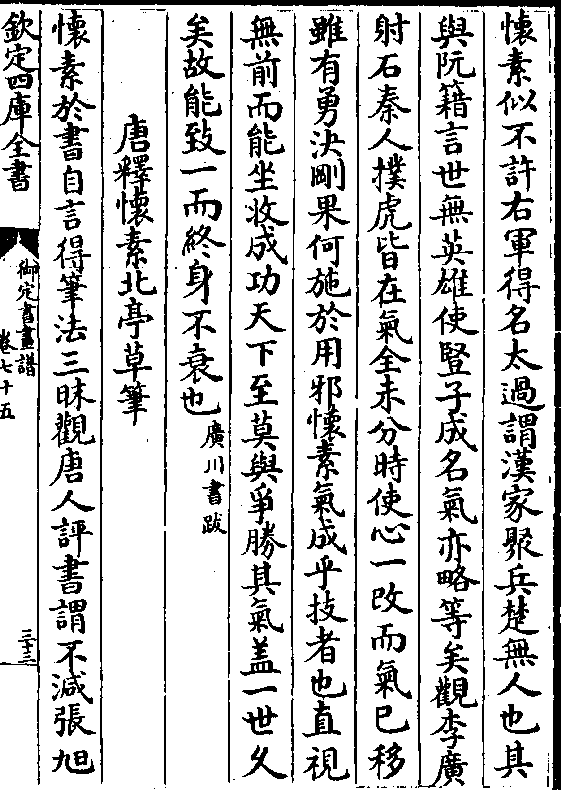 懷素似不許右軍得名太過謂漢家聚兵楚無人也其
與阮籍言世無英雄使豎子成名氣亦略等矣觀李廣
射石秦人撲虎皆在氣全未分時使心一改而氣已移
雖有勇決剛果何施於用邪懷素氣成乎技者也直視
無前而能坐收成功天下至莫與爭勝其氣盖一世久
矣故能致一而終身不衰也廣川書跋
唐釋懷素北亭草筆
懷素於書自言得筆法三昧觀唐人評書謂不減張旭
欽定四庫全書
御定書畫譜
卷七十五
三十三